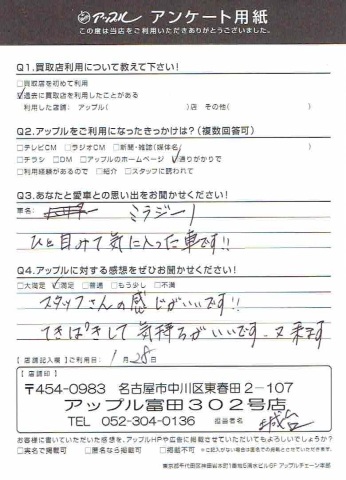 アップル アンケート用紙
この度は当店をご利用いただきありがとうございました。
Q1.買取店利用について教えて下さい!
□買取店を初めて利用
☑過去に買取店を利用したことがある
利用した店舗: アップル( )店 その他( )
Q2.アップルをご利用になったきっかけは?(複数回答可)
□テレビCM □ラジオCM □新聞・雑誌(媒体名 )
□チラシ □DM □アップルのホームページ ☑通りがかりで
□利用経験があるので □紹介 □スタッフに誘われて
Q3.あなたと愛車との思い出をお聞かせください!
車名: ミラジーノ
ひと目みて気に入った車です!!
Q4.アップルに対する感想をぜひお聞かせください!
□大満足 ☑満足 □普通 □もう少し □不満
スタッフさんの感じがいいです!!
てきぱきして気持ちがいいです。又来ます
【店舗記入欄】ご利用日: 1月28日
【店舗印】
〒454-0983 名古屋市中川区東春田2-107
アップル富田302号店
TEL 052-304-0136 担当者名
お客様に書いていただいた感想を、アップルHPや広告に掲載させていただいてもよろしいでしょうか?
□実名で掲載可 □匿名なら掲載可 □掲載不可 ※ご記入がない場合は匿名での掲載とさせていただきます。
東京都千代田区神田岩本町1番地5清水ビル6F アップルチェーン本部